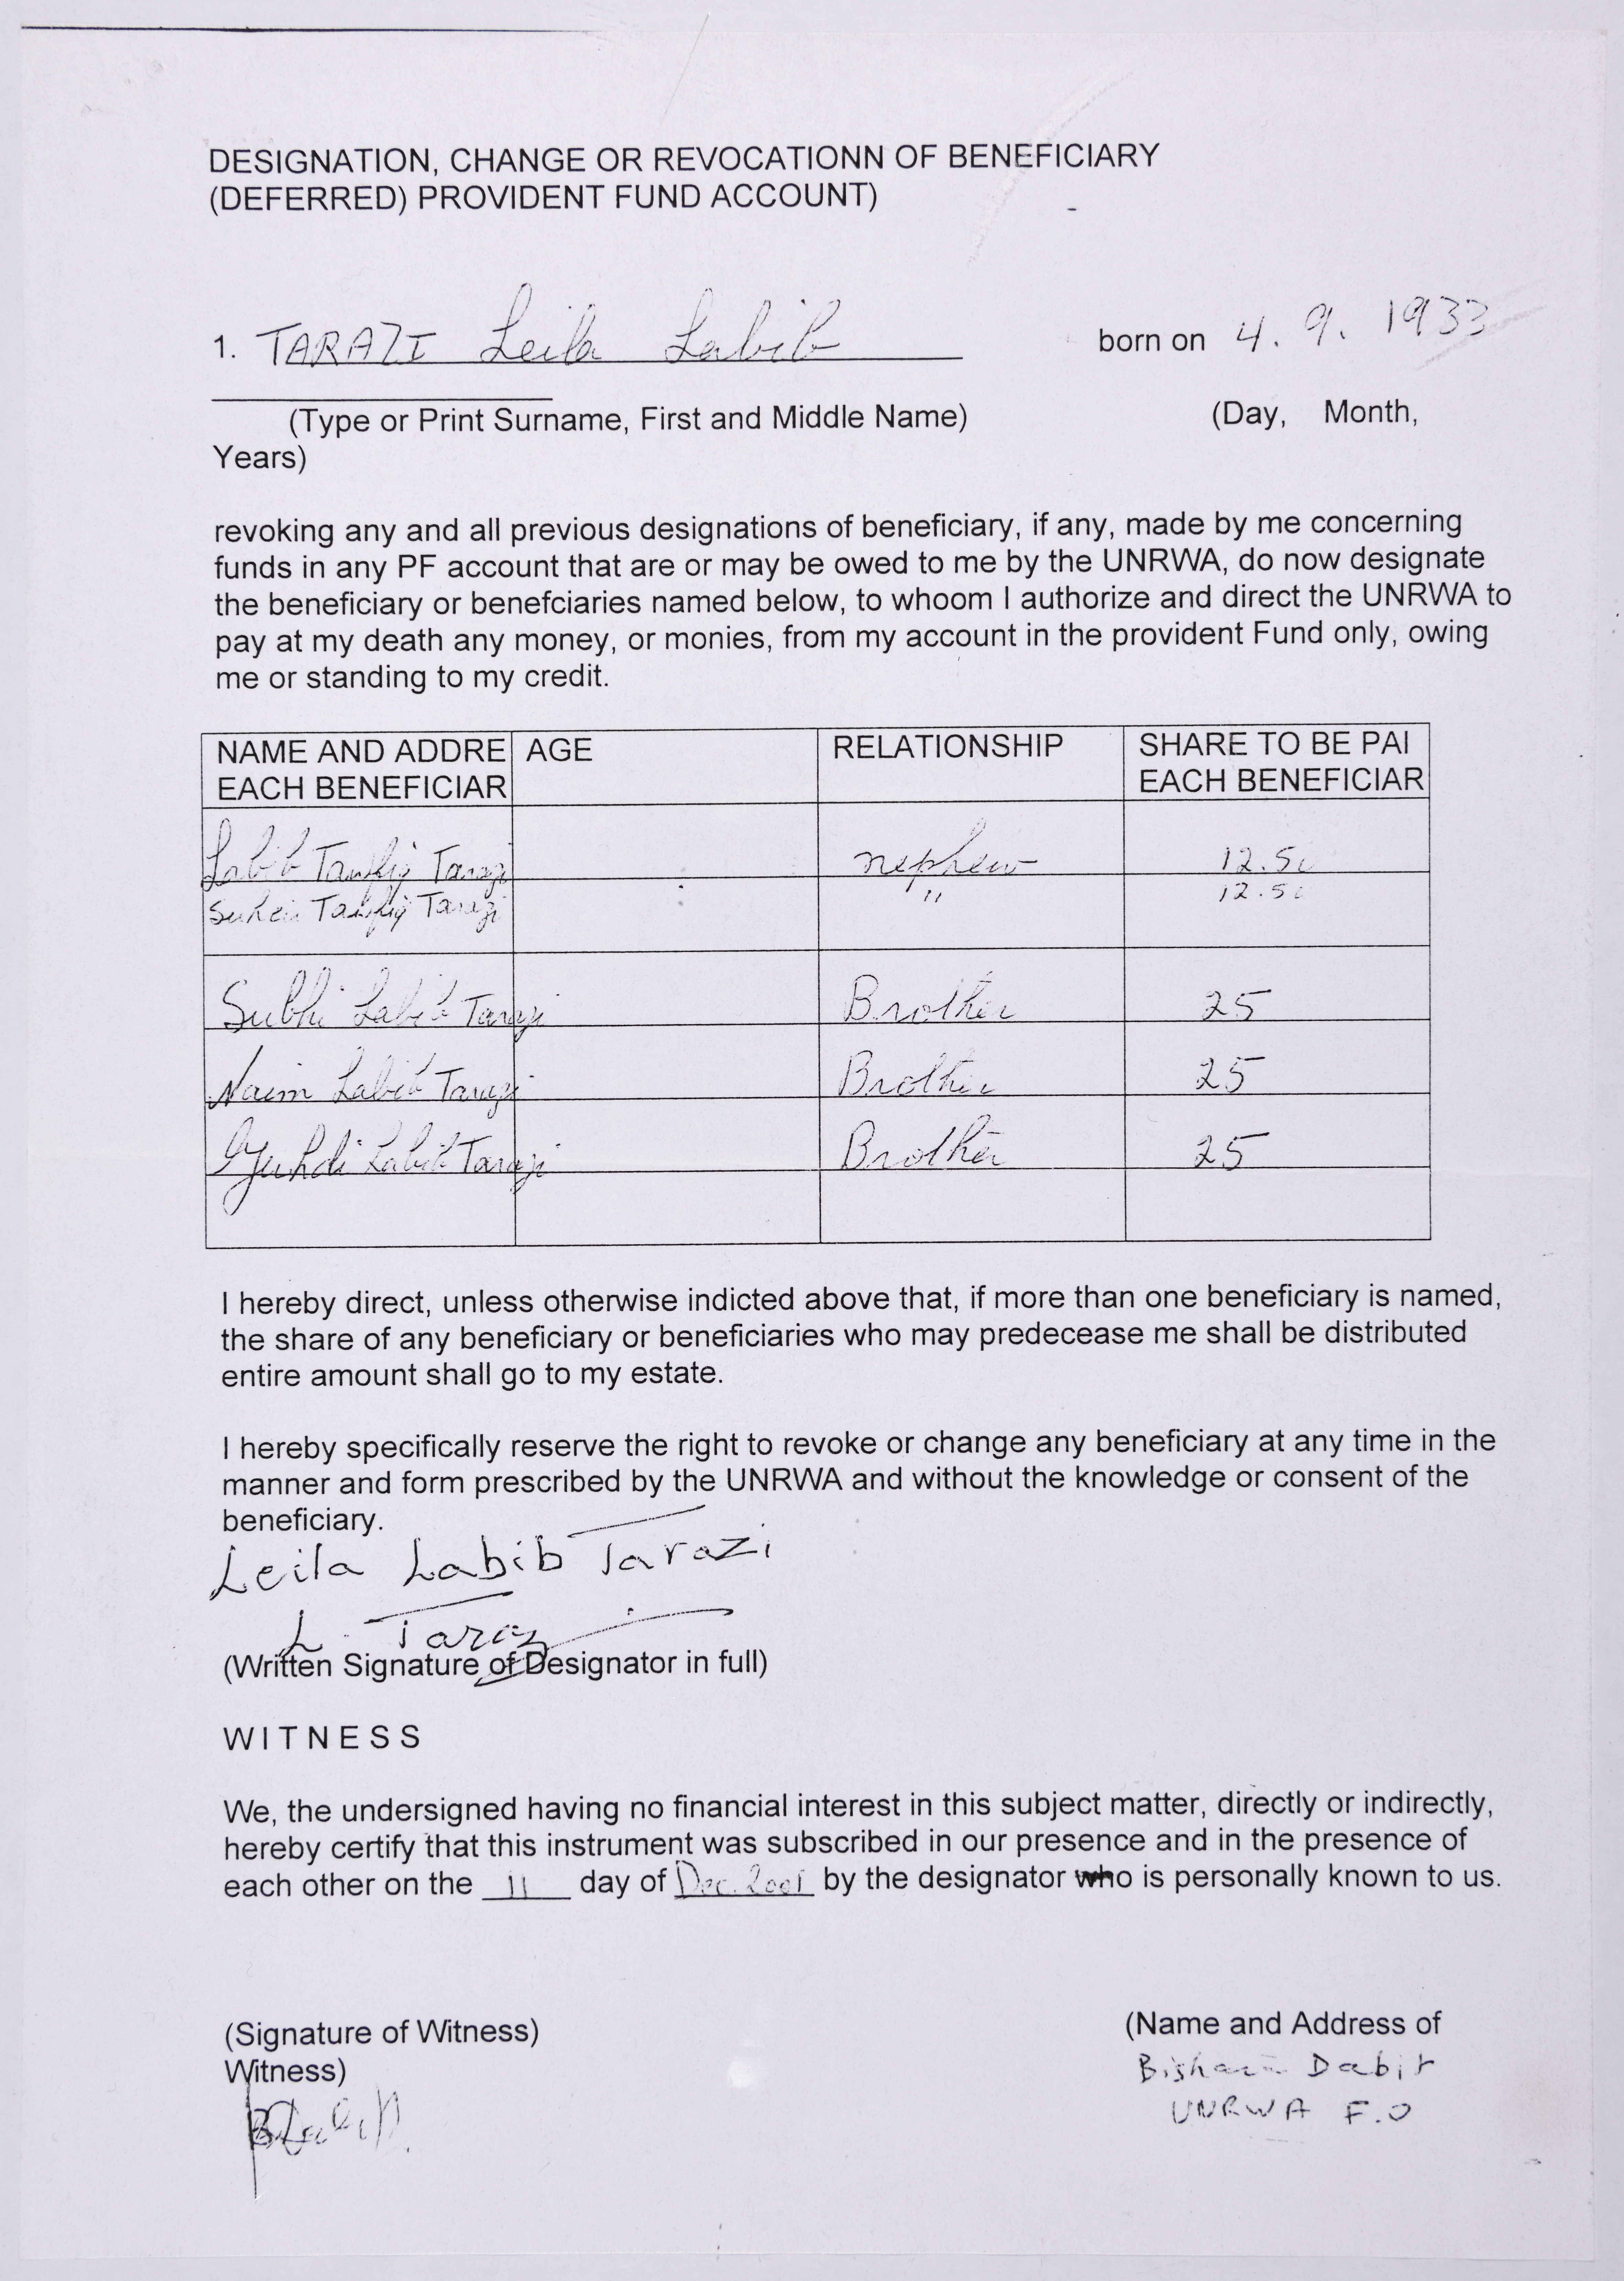 DESIGNATION, CHANGE OR REVOCATIONN OF BENEFICIARY
(DEFERRED) PROVIDENT FUND ACCOUNT)
1. TARAZI Leila Labib born on 4. 9. 1933
(Type or Print Surname, First and Middle Name) (Day, Month,
Years)
revoking any and all previous designations of beneficiary, if any, made by me concerning
funds in any PF account that are or may be owed to me by the UNRWA, do now designate
the beneficiary or benefciaries named below, to whoom I authorize and direct the UNRWA to
pay at my death any money, or monies, from my account in the provident Fund only, owing
me or standing to my credit.
NAME AND ADDRE AGE RELATIONSHIP SHARE TO BE PAI
EACH BENEFICIAR EACH BENEFICIAR
Labib Tawfiq Tarazi nephew 12.50
Tawfiq Tarazi " 12.50
Subhi Labib Tarazi Brother 25
Naim Labib Tarazi Brother 25
Labib Tarazi Brother 25
I hereby direct, unless otherwise indicted above that, if more than one beneficiary is named,
the share of any beneficiary or beneficiaries who may predecease me shall be distributed
entire amount shall go to my estate.
I hereby specifically reserve the right to revoke or change any beneficiary at any time in the
manner and form prescribed by the UNRWA and without the knowledge or consent of the
beneficiary.
Leila Labib Tarazi
L. Tarazi
(Written Signature of Designator in full)
WITNESS
We, the undersigned having no financial interest in this subject matter, directly or indirectly,
hereby certify that this instrument was subscribed in our presence and in the presence of
each other on the 11 day of Dec. 2001 by the designator who is personally known to us.
(Signature of Witness) (Name and Address of
Witness)
Bishara Dabit
UNRWA F.O